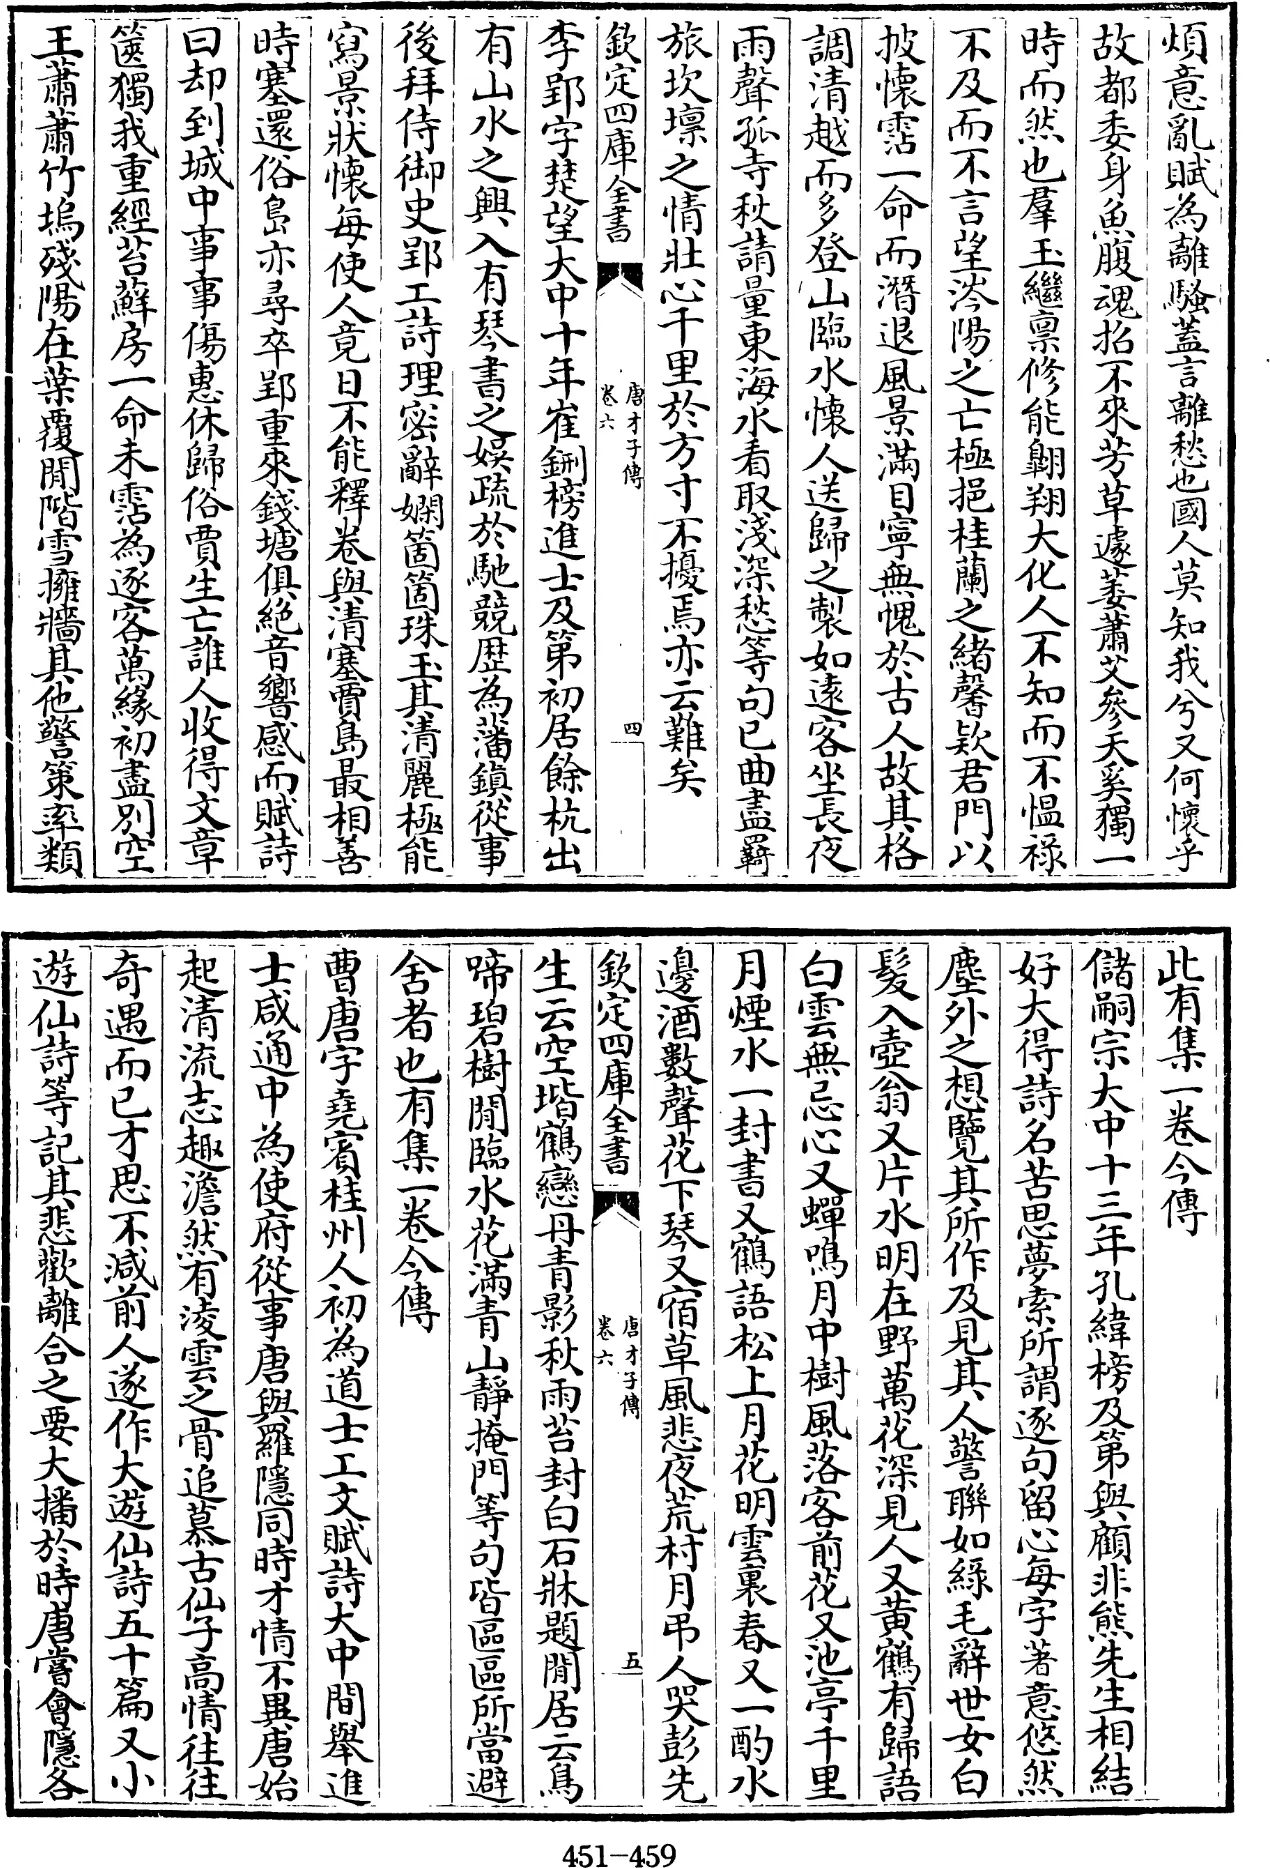 煩意亂賦為離騷蓋言離愁也國人莫知我兮又何懷乎
故都委身魚腹魂招不來芳草遽萎蕭艾參天奚獨一
時而然也羣玉繼禀修能翺翔大化人不知而不愠禄
不及而不言望涔陽之亡極挹桂蘭之緒馨欵君門以
披懷霑一命而潛退風景滿目寧無愧於古人故其格
調清越而多登山臨水懷人送歸之製如遠客坐長夜
雨聲孤寺秋請量東海水看取淺深愁等句已曲盡羇
旅坎壈之情壯心千里於方寸不擾焉亦云難矣
欽定四庫全書
唐才子傳
卷六
四
李郢字楚望大中十年崔鉶榜進士及第初居餘杭出
有山水之興入有琴書之娱疏於馳競歴為藩鎮從事
後拜侍御史郢工詩理密辭嫻箇箇珠玉其清麗極能
寫景狀懷每使人竟日不能釋卷與清塞賈島最相善
時塞還俗島亦尋卒郢重來錢塘俱絶音響感而賦詩
曰却到城中事事傷惠休歸俗賈生亡誰人收得文章
篋獨我重經苔蘚房一命未霑為逐客萬緣初盡别空
王蕭蕭竹塢殘陽在葉覆閒階雪擁牆其他警策率類
此有集一卷今傳
儲嗣宗大中十三年孔緯榜及第與顧非熊先生相結
好大得詩名苦思夢索所謂逐句留心每字著意悠然
塵外之想覽其所作及見其人警聯如緑毛辭世女白
髪入壺翁又片水明在野萬花深見人又黄鶴有歸語
白雲無忌心又蟬鳴月中樹風落客前花又池亭千里
月煙水一封書又鶴語松上月花明雲裏春又一酌水
邊酒數聲花下琴又宿草風悲夜荒村月弔人哭彭先
欽定四庫全書
唐才子傳
卷六
五
生云空堦鶴戀丹青影秋雨苔封白石牀題閒居云鳥
啼碧樹閒臨水花滿青山靜掩門等句皆區區所當避
舍者也有集一卷今傳
曹唐字堯賓桂州人初為道士工文賦詩大中間舉進
士咸通中為使府從事唐與羅隱同時才情不異唐始
起清流志趣澹然有淩雲之骨追慕古仙子高情往往
奇遇而已才思不減前人遂作大遊仙詩五十篇又小
遊仙詩等記其悲歡離合之要大播於時唐嘗會隱各
451-459